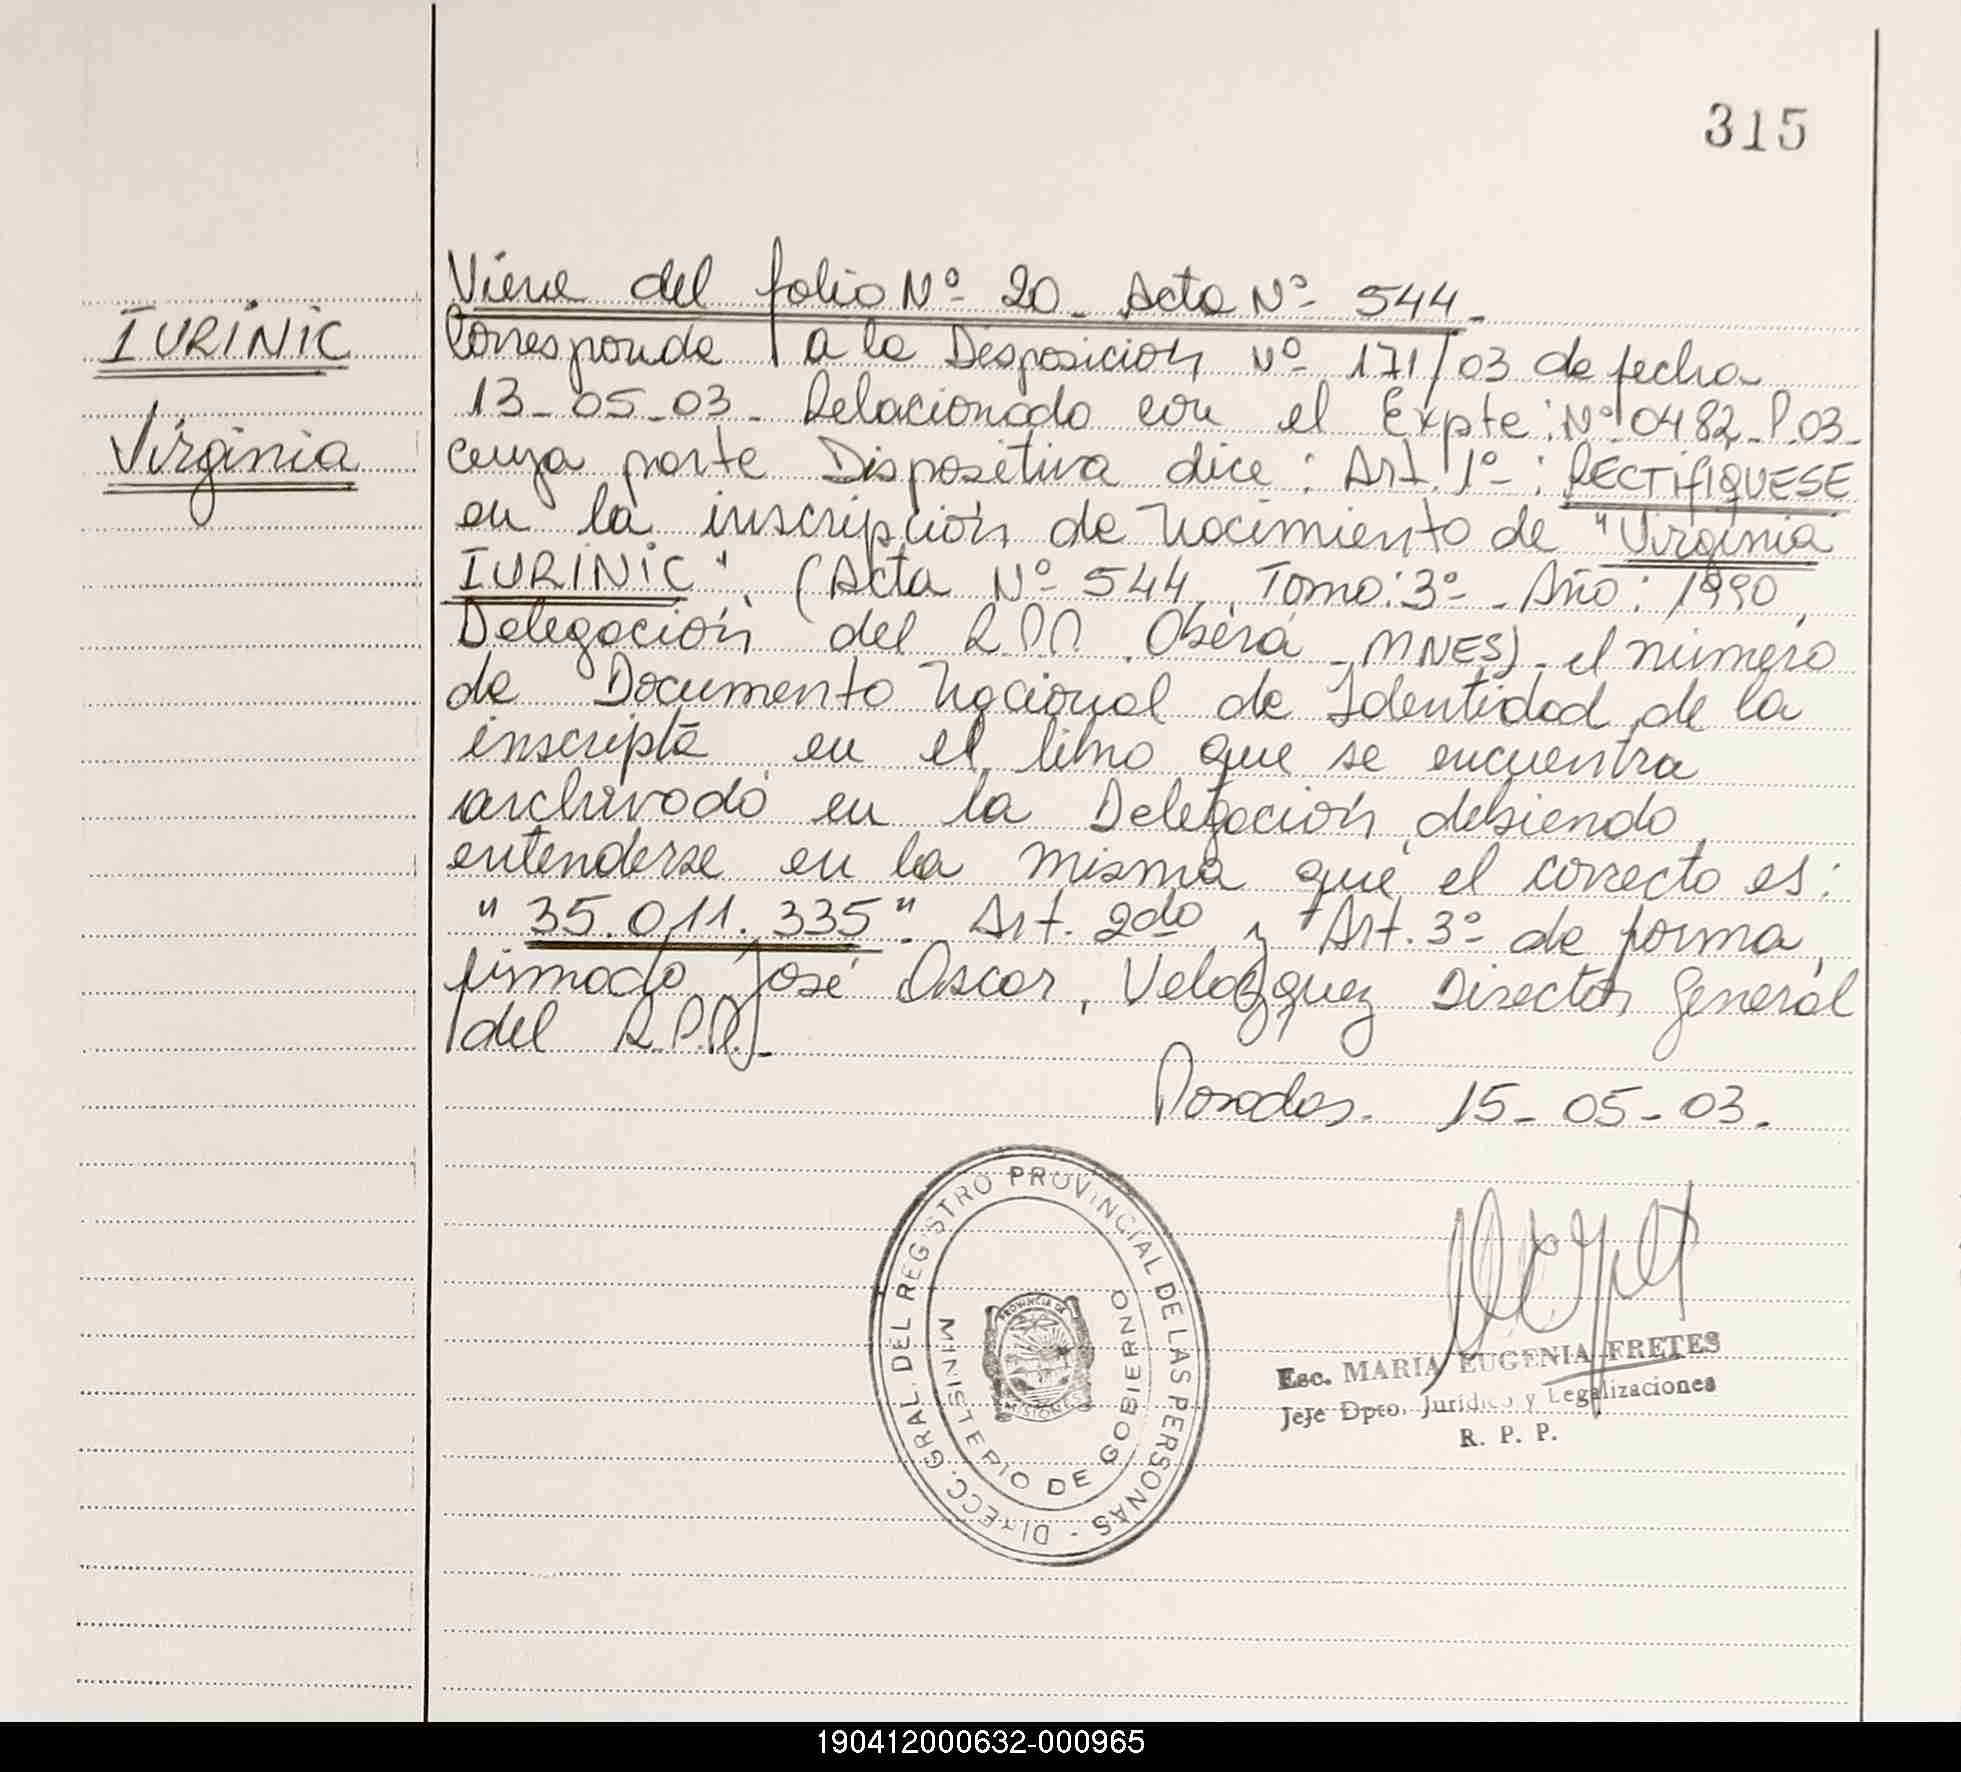 315
IURINIC
Virginia
Viene del folio Nº 20_ Acta Nº 544_
Corresponde a la Disposición Nº 171/03 de fecha
13-05-03_ Relacionado con el Expte: Nº 0482_P.03_
cuya parte Dispositiva dice: Art. 1º: RECTIFIQUESE
en la inscripción de Nacimiento de "Virginia
IURINIC", (Acta Nº 544, Tomo: 3º_ Año: 1990,
Delegación del R.P.P. Oberá _ MNES)_ el número
de Documento Nacional de Identidad de la
inscripta en el libro que se encuentra
archivado en la Delegación, debiendo
entenderse en la misma que el correcto es:
"35.011.335". Art. 2do y Art. 3º de forma,
firmado José Oscar, Velazquez Director General
del R.P.P._
Posadas. 15_ 05_ 03_
DIRECC. GRAL. DEL REGISTRO PROVINCIAL DE LAS PERSONAS -
MINISTERIO DE GOBIERNO
PROVINCIA DE
MISIONES
Esc. MARIA EUGENIA FRETES
Jefe Dpto. Jurídico y Legalizaciones
R. P. P.
190412000632-000965